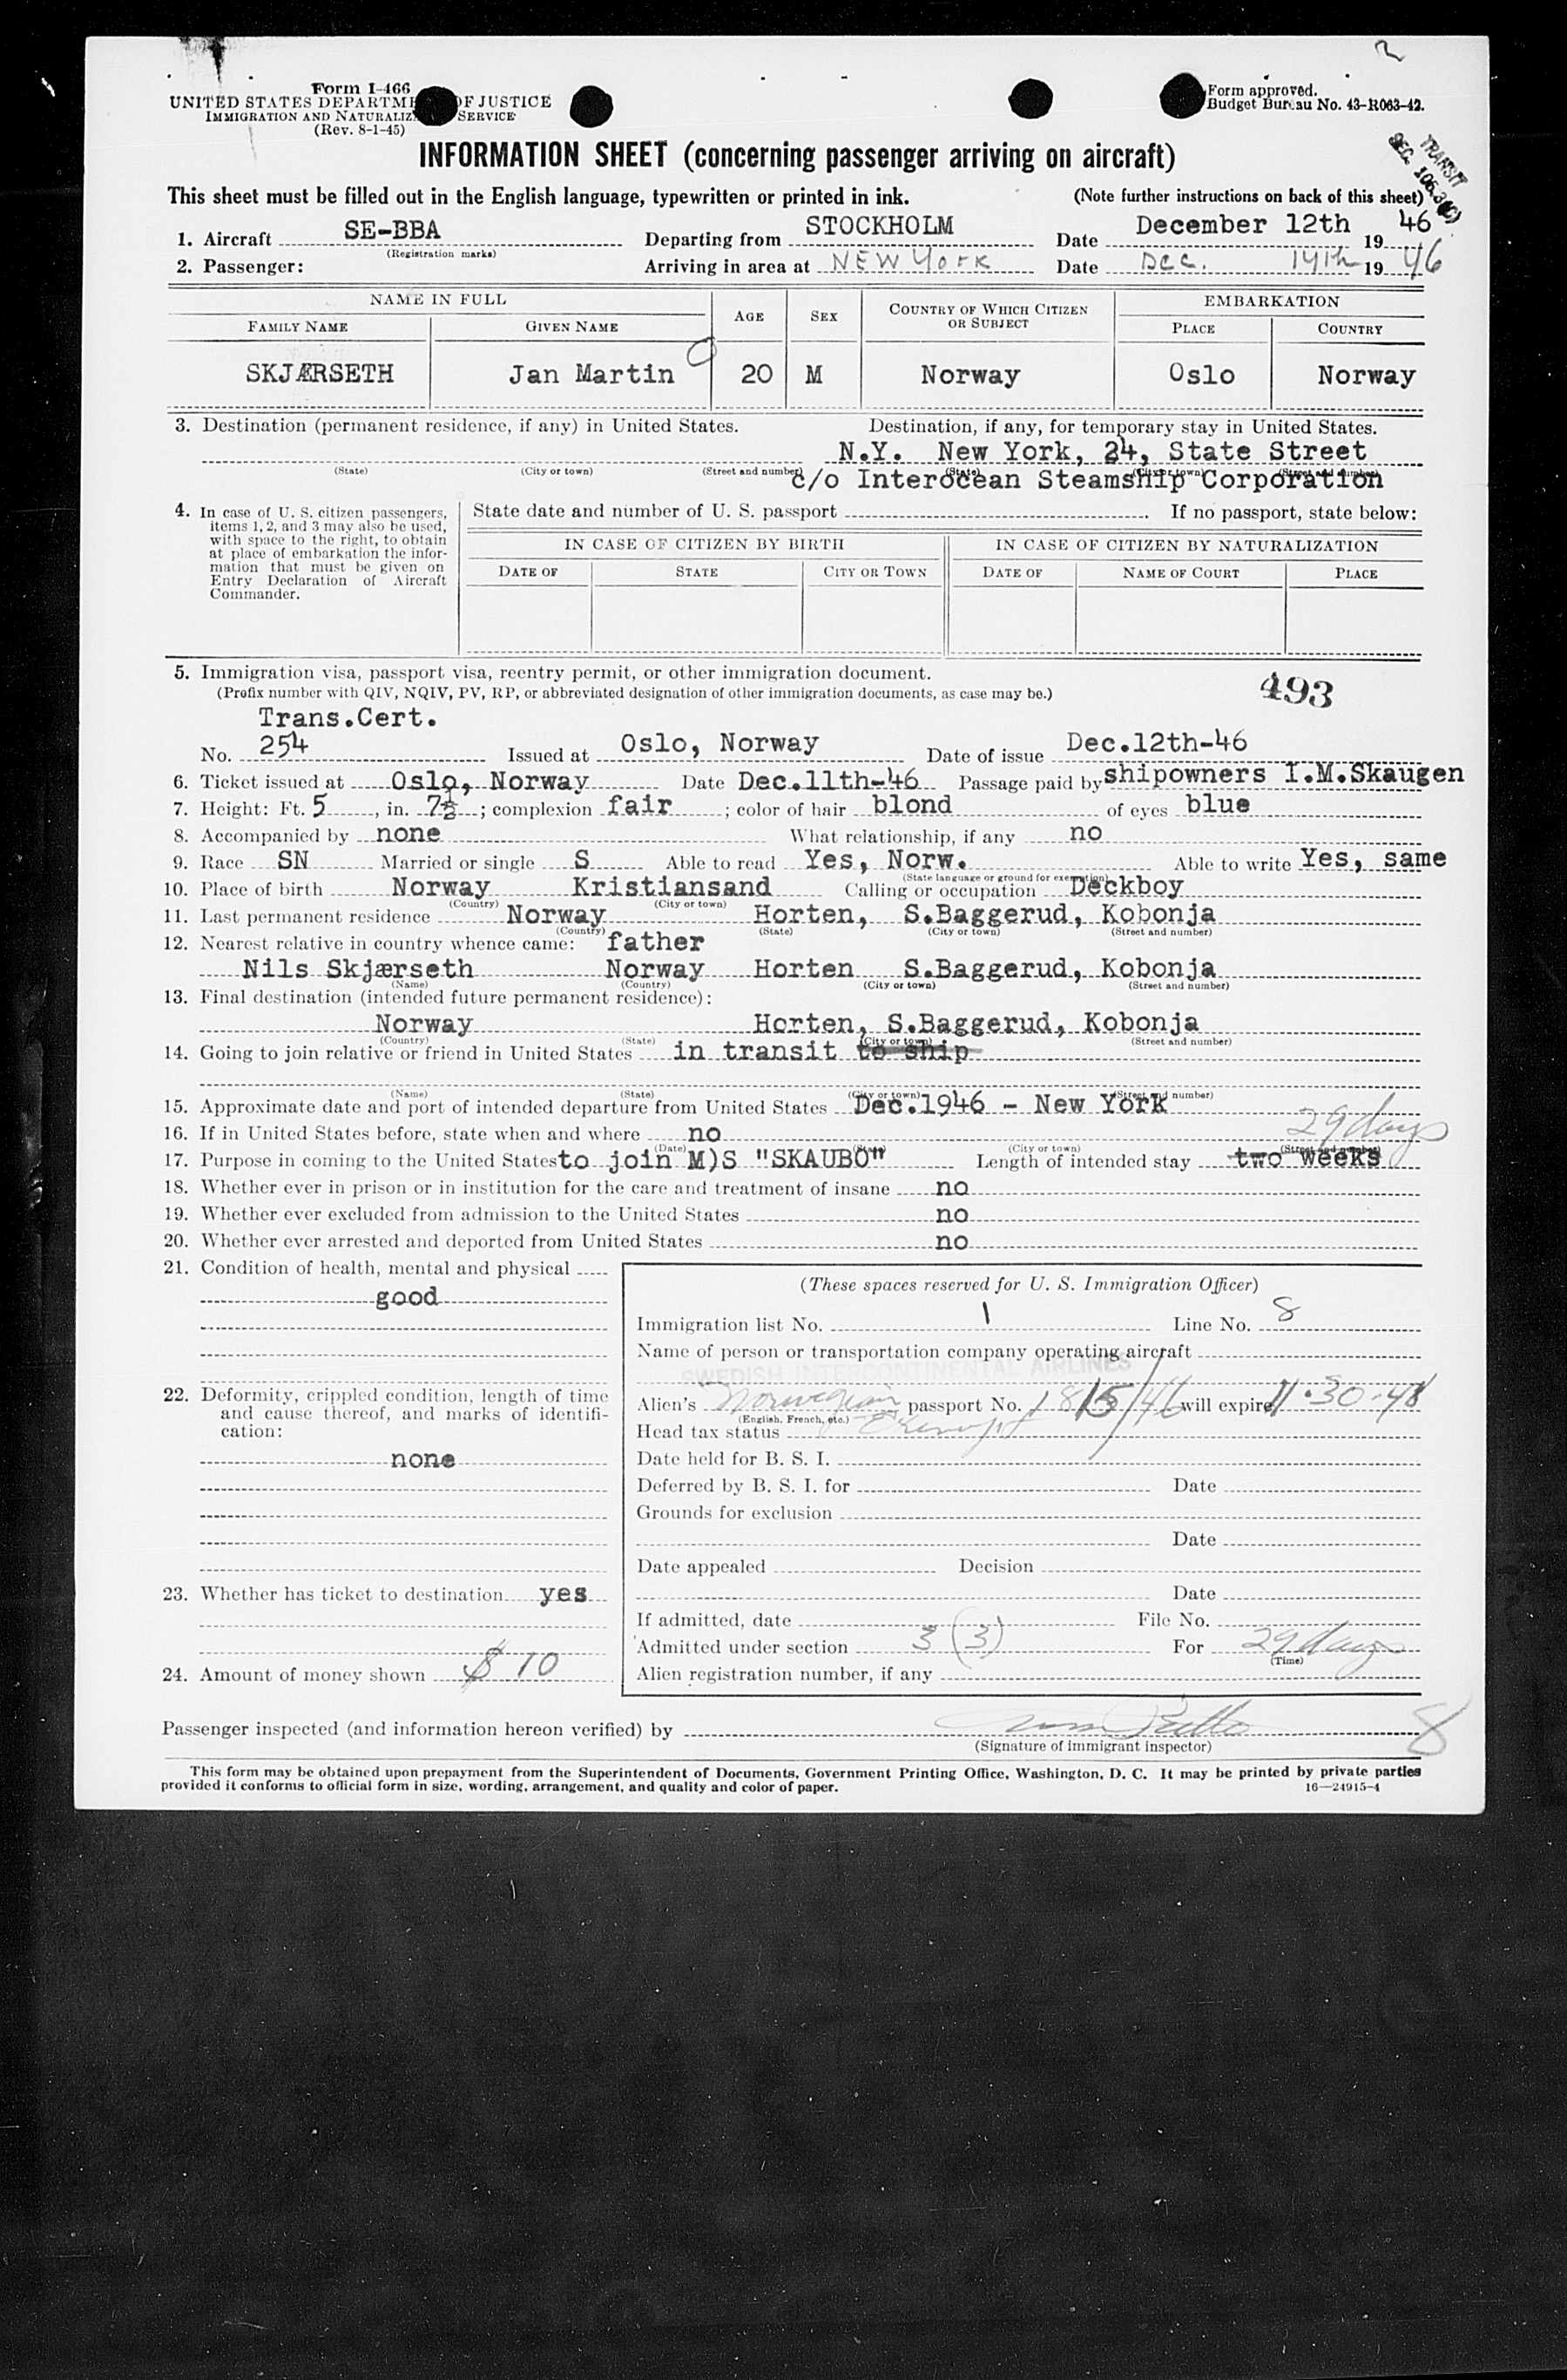 2
Form I-466
UNITED STATES DEPARTMENT OF JUSTICE
IMMIGRATION AND NATURALIZATION SERVICE
(Rev. 8-1-45)
Form approved.
Budget Bureau No. 43-R063-42.
TRANSIT
SEC. 105.3(C)
INFORMATION SHEET (concerning passenger arriving on aircraft)
This sheet must be filled out in the English language, typewritten or printed in ink. (Note further instructions on back of this sheet)
1. Aircraft SE-BBA Departing from STOCKHOLM Date December 12th 1946
(Registration marks)
2. Passenger: Arriving in area at NEW York Date Dec. 14th 1946
NAME IN FULL AGE SEX COUNTRY OF WHICH CITIZEN OR SUBJECT EMBARKATION
FAMILY NAME GIVEN NAME PLACE COUNTRY
SKJÆRSETH Jan Martin 20 M Norway Oslo Norway
3. Destination (permanent residence, if any) in United States. Destination, if any, for temporary stay in United States.
N.Y. New York, 24, State Street
(State) (City or town) (Street and number) (State) (City or town) (Street and number)
c/o Interocean Steamship Corporation
4. In case of U. S. citizen passengers, items 1, 2, and 3 may also be used, with space to the right, to obtain at place of embarkation the information that must be given on Entry Declaration of Aircraft Commander.
State date and number of U. S. passport If no passport, state below:
IN CASE OF CITIZEN BY BIRTH IN CASE OF CITIZEN BY NATURALIZATION
DATE OF STATE CITY OR TOWN DATE OF NAME OF COURT PLACE
5. Immigration visa, passport visa, reentry permit, or other immigration document.
(Prefix number with QIV, NQIV, PV, RP, or abbreviated designation of other immigration documents, as case may be.)
493
Trans.Cert.
No. 254 Issued at Oslo, Norway Date of issue Dec.12th-46
6. Ticket issued at Oslo, Norway Date Dec.11th-46 Passage paid by shipowners I.M.Skaugen
7. Height: Ft. 5, in. 7½; complexion fair; color of hair blond of eyes blue
8. Accompanied by none What relationship, if any no
9. Race SN Married or single S Able to read Yes, Norw. Able to write Yes, same
(State language or ground for exemption)
10. Place of birth Norway Kristiansand Calling or occupation Deckboy
(Country) (City or town)
11. Last permanent residence Norway Horten, S.Baggerud, Kobonja
(Country) (State) (City or town) (Street and number)
12. Nearest relative in country whence came: father
Nils Skjærseth Norway Horten S.Baggerud, Kobonja
(Name) (Country) (City or town) (Street and number)
13. Final destination (intended future permanent residence):
Norway Horten, S.Baggerud, Kobonja
(Country) (State) (City or town) (Street and number)
14. Going to join relative or friend in United States in transit to ship
(Name) (State) (City or town) (Street and number)
15. Approximate date and port of intended departure from United States Dec.1946 - New York
16. If in United States before, state when and where no 29 days
(Date) (State) (City or town) (Street and number)
17. Purpose in coming to the United States to join M)S "SKAUBO" Length of intended stay two weeks
18. Whether ever in prison or in institution for the care and treatment of insane no
19. Whether ever excluded from admission to the United States no
20. Whether ever arrested and deported from United States no
21. Condition of health, mental and physical
good
22. Deformity, crippled condition, length of time and cause thereof, and marks of identification:
none
23. Whether has ticket to destination yes
24. Amount of money shown $ 10
(These spaces reserved for U. S. Immigration Officer)
Immigration list No. 1 Line No. 8
Name of person or transportation company operating aircraft
SWEDISH INTERCONTINENTAL AIRLINES
Alien's Norwegian passport No. 1815/46 will expire 11-30-48
(English, French, etc.)
Head tax status Exempt
Date held for B. S. I.
Deferred by B. S. I. for Date
Grounds for exclusion
Date
Date appealed Decision
Date
If admitted, date File No.
Admitted under section 3 (3) For 29 days
(Time)
Alien registration number, if any
Passenger inspected (and information hereon verified) by
8
(Signature of immigrant inspector)
This form may be obtained upon prepayment from the Superintendent of Documents, Government Printing Office, Washington, D. C. It may be printed by private parties
provided it conforms to official form in size, wording, arrangement, and quality and color of paper. 16—24915-4